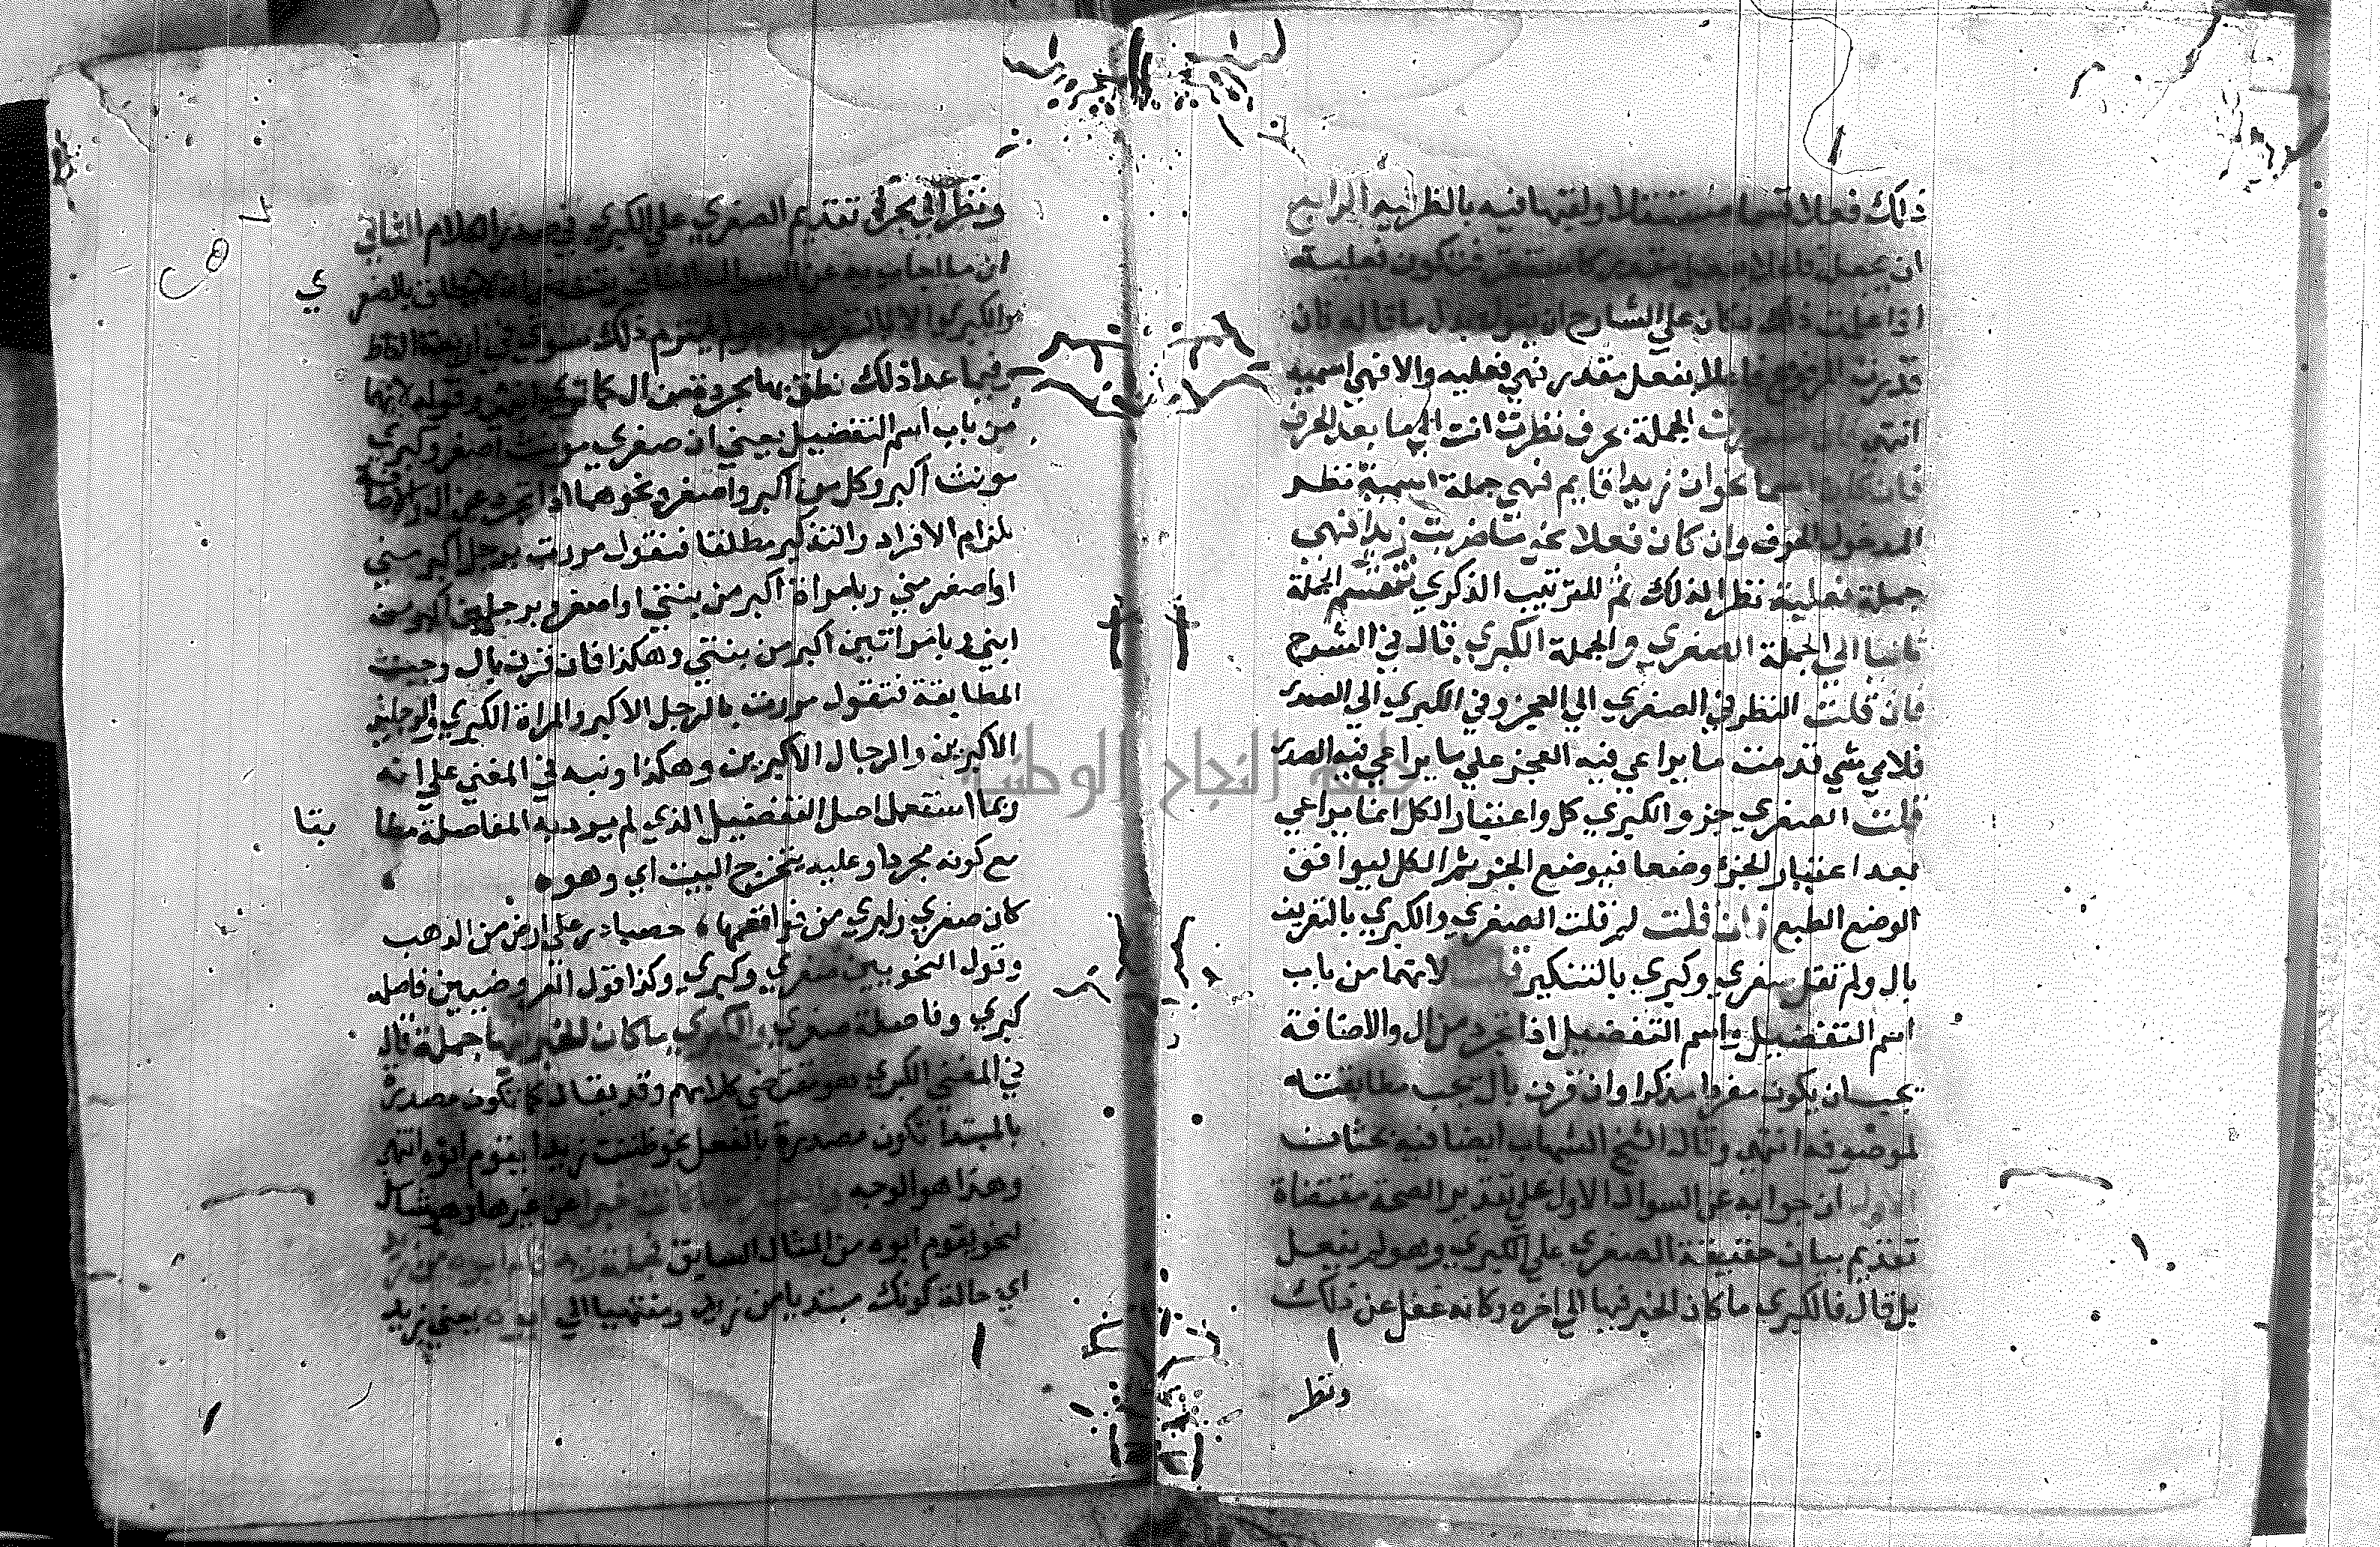 ذلك فعلا قسما مستقلا ولقبها فيه بالظرفيه الراجح
ان يجعل فاعلا بفعل مقدر كاستقر فتكون فعلية
اذا علمت ذلك فكان علي الشارح ان يقول بدل ما قاله فان
قدرت المرفوع فاعلا بفعل مقدر فهي فعليه والا فهي اسميه
انتهي فان صدرت الجملة بحرف نظرت انت الي ما بعد الحرف
فان كان اسما نحو ان زيدا قايم فهي جملة اسمية نظر
المدخول الحرف وان كان فعلا نحو ما ضربت زيدا فهي
جملة فعلية نظرا لذلك ثم للترتيب الذكري تنقسم الجملة
ثانيا الي الجملة الصغري والجملة الكبري قال في الشرح
فان قلت النظر في الصغري الي العجز وفي الكبري الي الصدر
فلاي شي قدمت ما يراعي فيه العجز علي ما يراعي فيه الصدر
قلت الصغري جزو الكبري كل واعتبار الكل انما يراعي
بعد اعتبار الجزء وضعا فيوضع الجزء ثم الكل ليوافق
الوضع الطبع فان قلت لم قلت الصغري والكبري بالتعريف
بال ولم تقل صغري وكبري بالتنكير قلت لانهما من باب
اسم التفضيل واسم التفضيل اذا تجرد من ال والاضافة
يجب ان يكون مفردا مذكرا وان قرن بال تجب مطابقته
لموصوفه انتهي وقال الشيخ الشهاب ايضا فيه بحثان
الاول ان جوابه عن السوال الاول علي تقدير الصحة مقتضاة
تقديم بيان حقيقة الصغري علي الكبري وهو لم يفعل
بل قال فالكبري ما كان الخبر فيها الي اخره وكانه غفل عن ذلك
ونظر
ونظر الي مجرد تقديم الصغري علي الكبري في صدر الكلام الثاني
ان ما اجاب به عن السوال الثاني يقتضي انه لا ينطق بالصغري
والكبري الا بالتعريف ولم يلتزم ذلك سوي في اربعة الفاظ
وفيما عدا ذلك نطق بها مجردة من ال كما تري انتهي وقوله لانهما
من باب اسم التفضيل يعني ان صغري مونث اصغر وكبري
مونث اكبر وكل من اكبر واصغر ونحوهما اذا تجرد عن ال والاضافة
يلزم الافراد والتذكير مطلقا فنقول مررت برجل اكبر مني
او اصغر مني وبامراة اكبر من بنتي او اصغر وبرجلين اكبر من
ابني وبامراتين اكبر من بنتي وهكذا فان قرن بال وجبت
المطابقة فتقول مررت بالرجل الاكبر والمراة الكبري والرجلين
الاكبرين والرجال الاكبرين وهكذا ونبه في المغني علي انه
ربما استعمل اصل التفضيل الذي لم يرد به المفاصلة مطا بقا
مع كونه مجردا وعليه يتخرج البيت اي وهو
كان صغري وكبري من فواقعها حصباء در علي ارض من الذهب
وقول النحويين صغري وكبري وكذا قول العروضيين فاصله
كبري وفاصلة صغري والكبري ما كان الخبر فيها جملة قال
في المغني الكبري هو مقتضي كلامهم وقد يقال كما تكون مصدرة
بالمبتدا تكون مصدرة بالفعل نحو ظننت زيدا يقوم ابوه انتهي
وهذا هو الوجه خبرا عن غيرها وهو مثال
لنحو يقوم ابوه من المثال السابق فجملة قام ابوه من زيد
اي حالة كونك مبتديا من زيد ومنتهيا الي ابوه يعني زيد